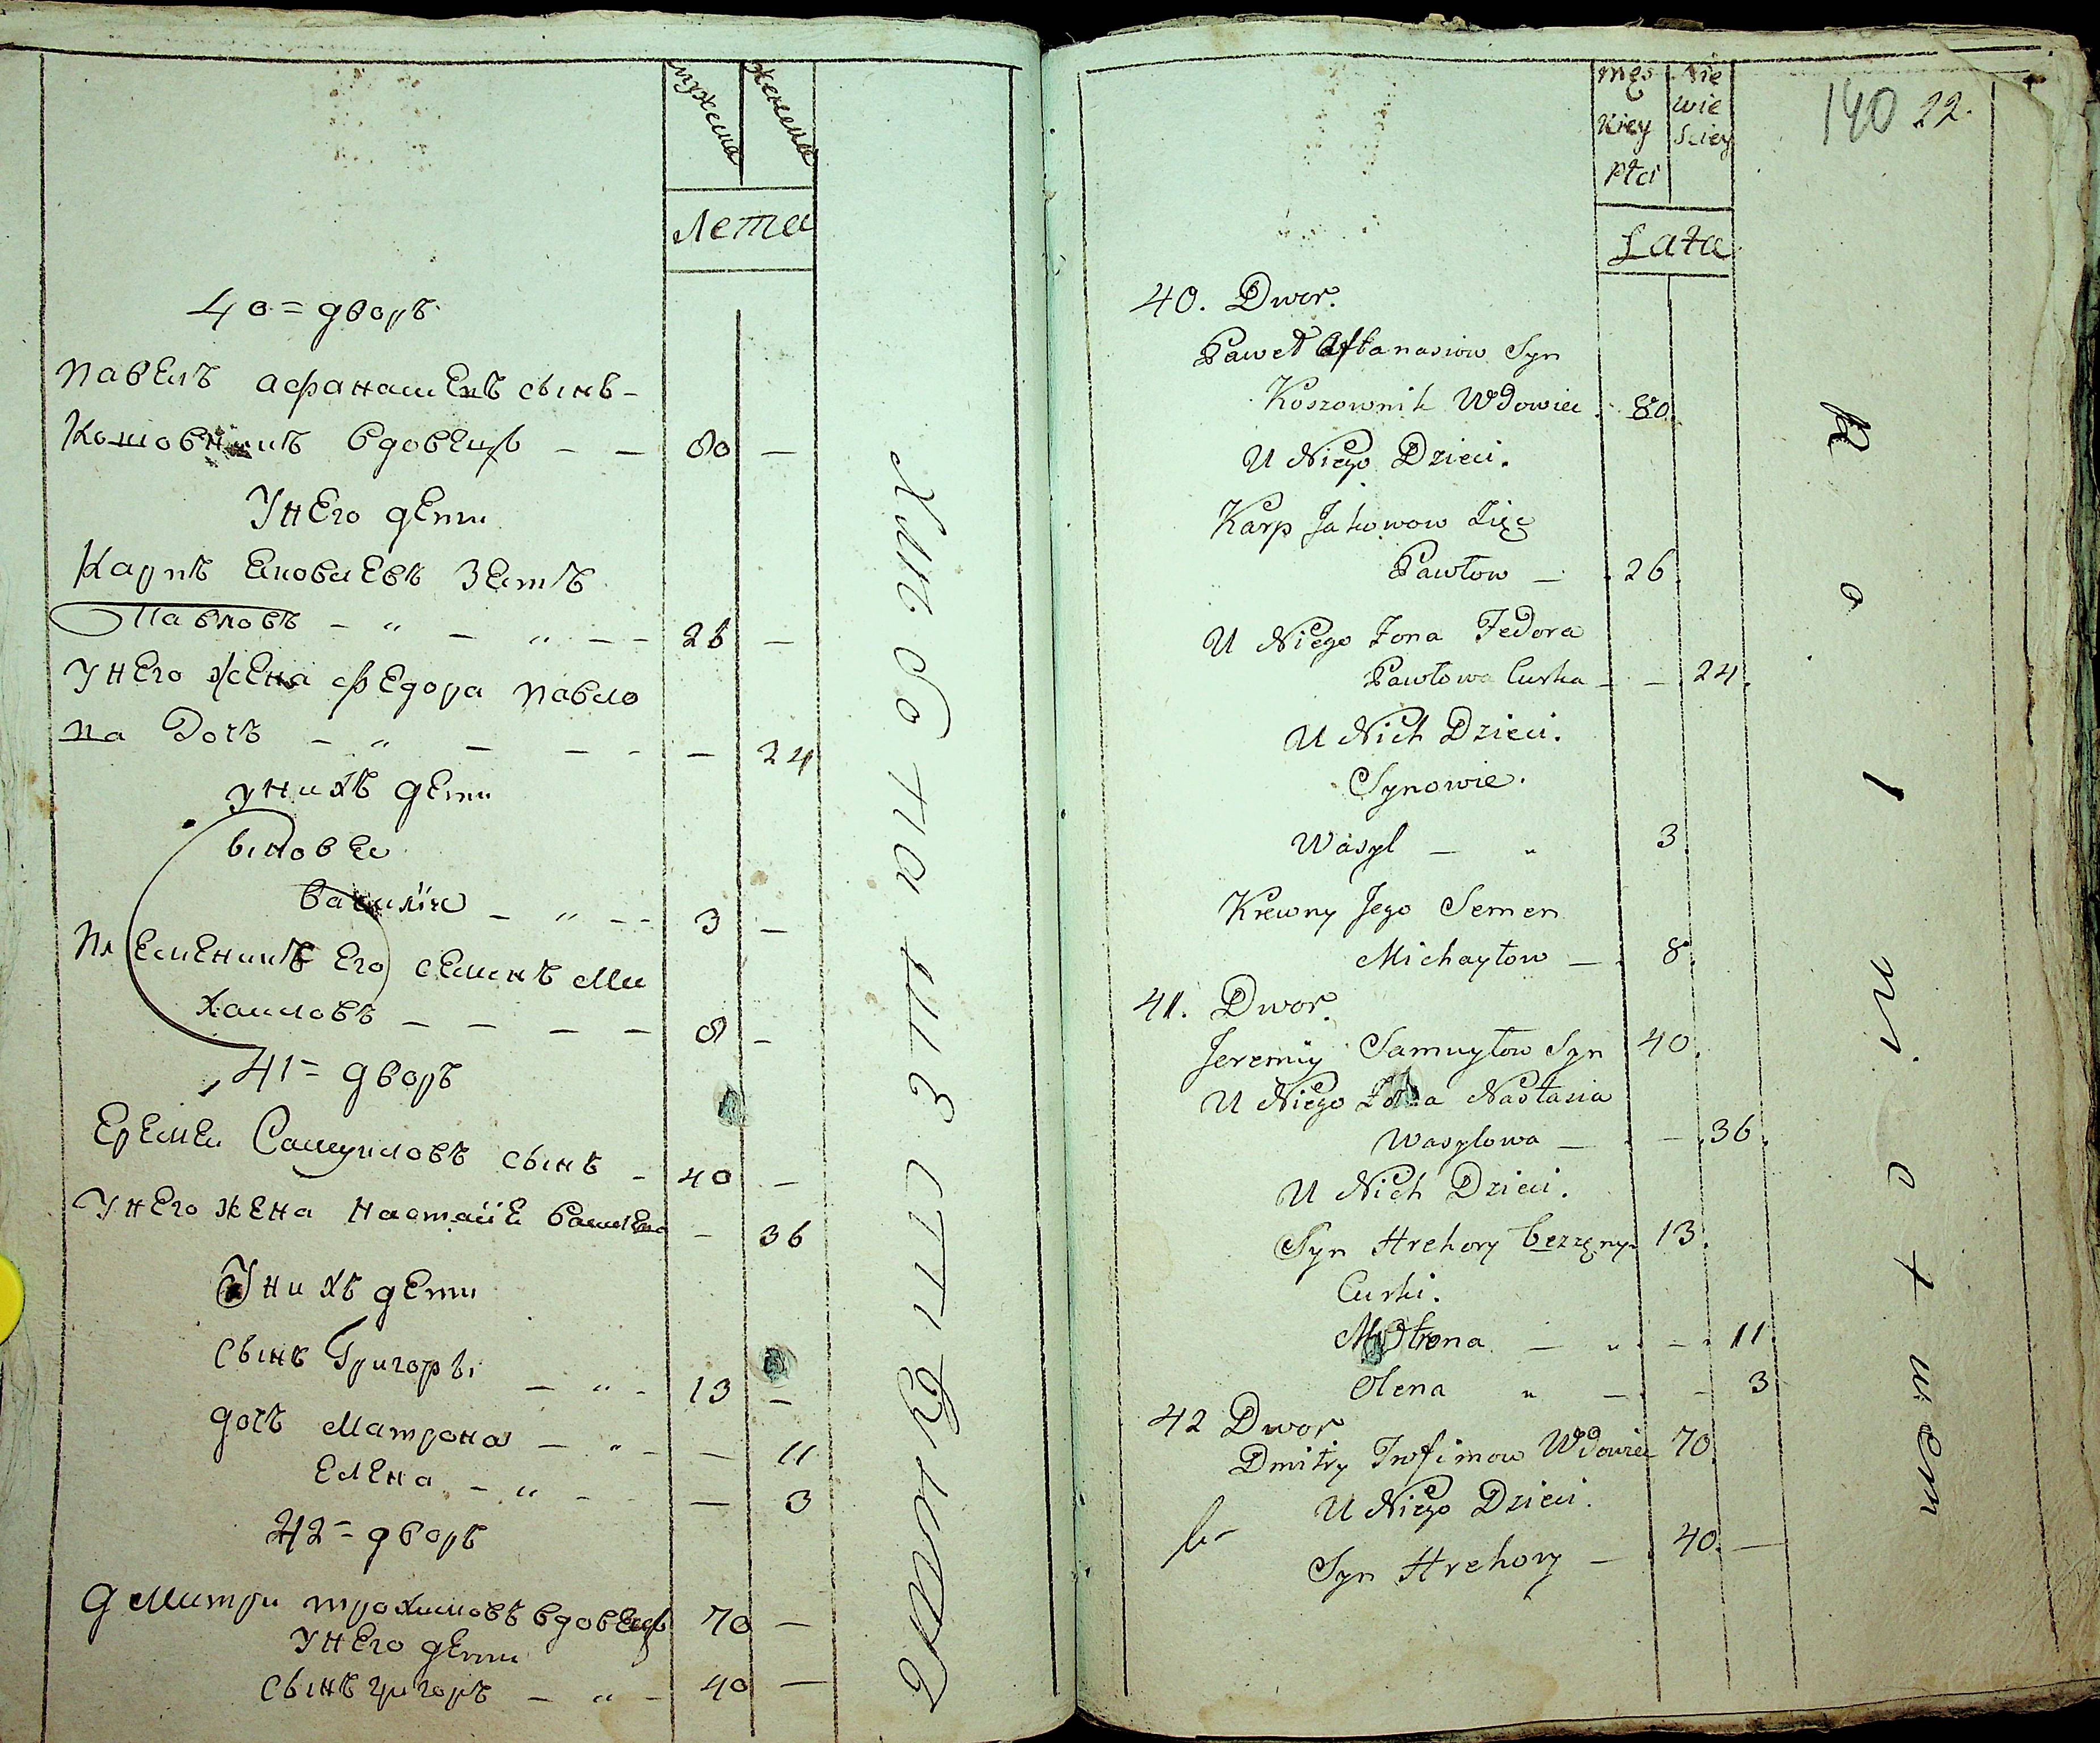 мужеска женска
Лета
40 = дворъ
павелъ афанасиевъ сынъ -
Кошовникъ вдовецъ - - 80 -
У него дети
Карпъ Яковлевъ Зеть
Павловъ - " - " - - 26 -
У него жена федора павло
ва Дочь - " - - - - 24
у нихъ дети
сыновье
василий - " - - 3 -
племеникъ его семенъ Ми
хаиловъ - - - - 8 -
41 = дворъ
Еремей Самуиловъ сынъ - 40 -
У него жена настасия василева - 36
У нихъ дети
сынъ Григорьи - " - 13 -
дочь Матрона - " - - 11
Елена - " - - 3
42 = дворъ
дмитри трохимовъ вдовецъ 70 -
У него дети
сынъ григоръ - " - 40 -
męs kiey płci
Nie wie sciey
Lata
140 22.
40. Dwor.
Paweł Aftanasiow Syn
Koszownik Wdowiec . 80.
U Niego Dzieci.
Karp Jakowow Zięć
Pawłow - . 26.
U Niego Żona Fedora
Pawłowa Curka - - . 24.
U Nich Dzieci.
Synowie.
Wasyl - " 3.
Krewny Jego Semen
Michayłow - . 8.
41. Dwor.
Jeremiy Samuyłow Syn 40.
U Niego Żona Nastasia
Wasylowa - . - . 36.
U Nich Dzieci.
Syn Hrehory bezżęny. 13.
Curki.
Motrona - " . - . 11
Olena " - . - 3
42 Dwor.
Dmitry Trofimow Wdowiec 70.
U Niego Dzieci.
Syn Hrehory - . 40. -